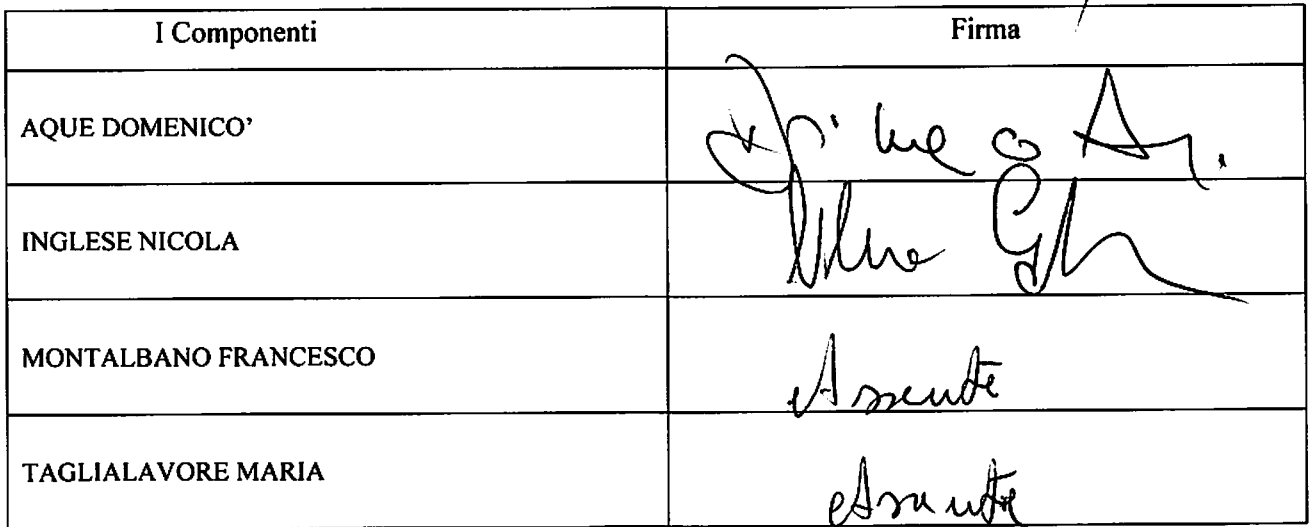 I Componenti Firma
AQUE DOMENICO'
INGLESE NICOLA
MONTALBANO FRANCESCO Assente
TAGLIALAVORE MARIA Assente